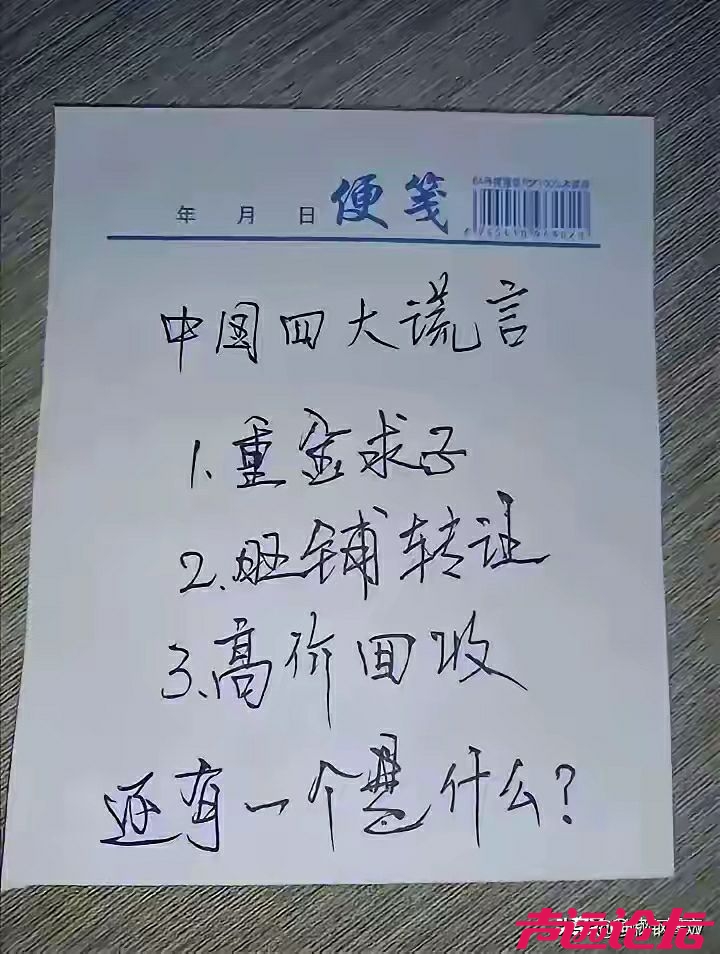 年 月 日 便笺
中国四大谎言
1.重金求子
2.旺铺转让
3.高价回收
还有一个是什么?
声远论坛